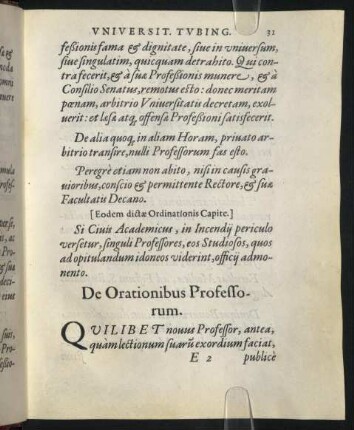 VNIVERSIT. TVBING. 31
feßionis fama & dignitate, siue in vniuersum,
siue singulatim, quicquam detrahito. Qui con-
tra fecerit, & à suæ Profeßionis munere, & à
Consilio Senatus, remotus esto: donec meritam
pœnam, arbitrio Vniuersitatis decretam, exol-
uerit: et læsæ atq́; offensæ Profeßioni satisfecerit.
De alia quoq́; in aliam Horam, priuato ar-
bitrio transire, nulli Professorum fas esto.
Peregrè etiam non abito, nisi in causis gra-
uioribus, conscio & permittente Rectore, & suæ
Facultatis Decano.
[Eodem dictæ Ordinationis Capite.]
Si Ciuis Academicus, in Incendij periculo
versetur, singuli Professores, eos Studiosos, quos
ad opitulandum idoneos viderint, officij admo-
nento.
De Orationibus Professo-
rum.
QVILIBET nouus Professor, antea,
quàm lectionum suarũ exordium faciat,
E 2 publicè